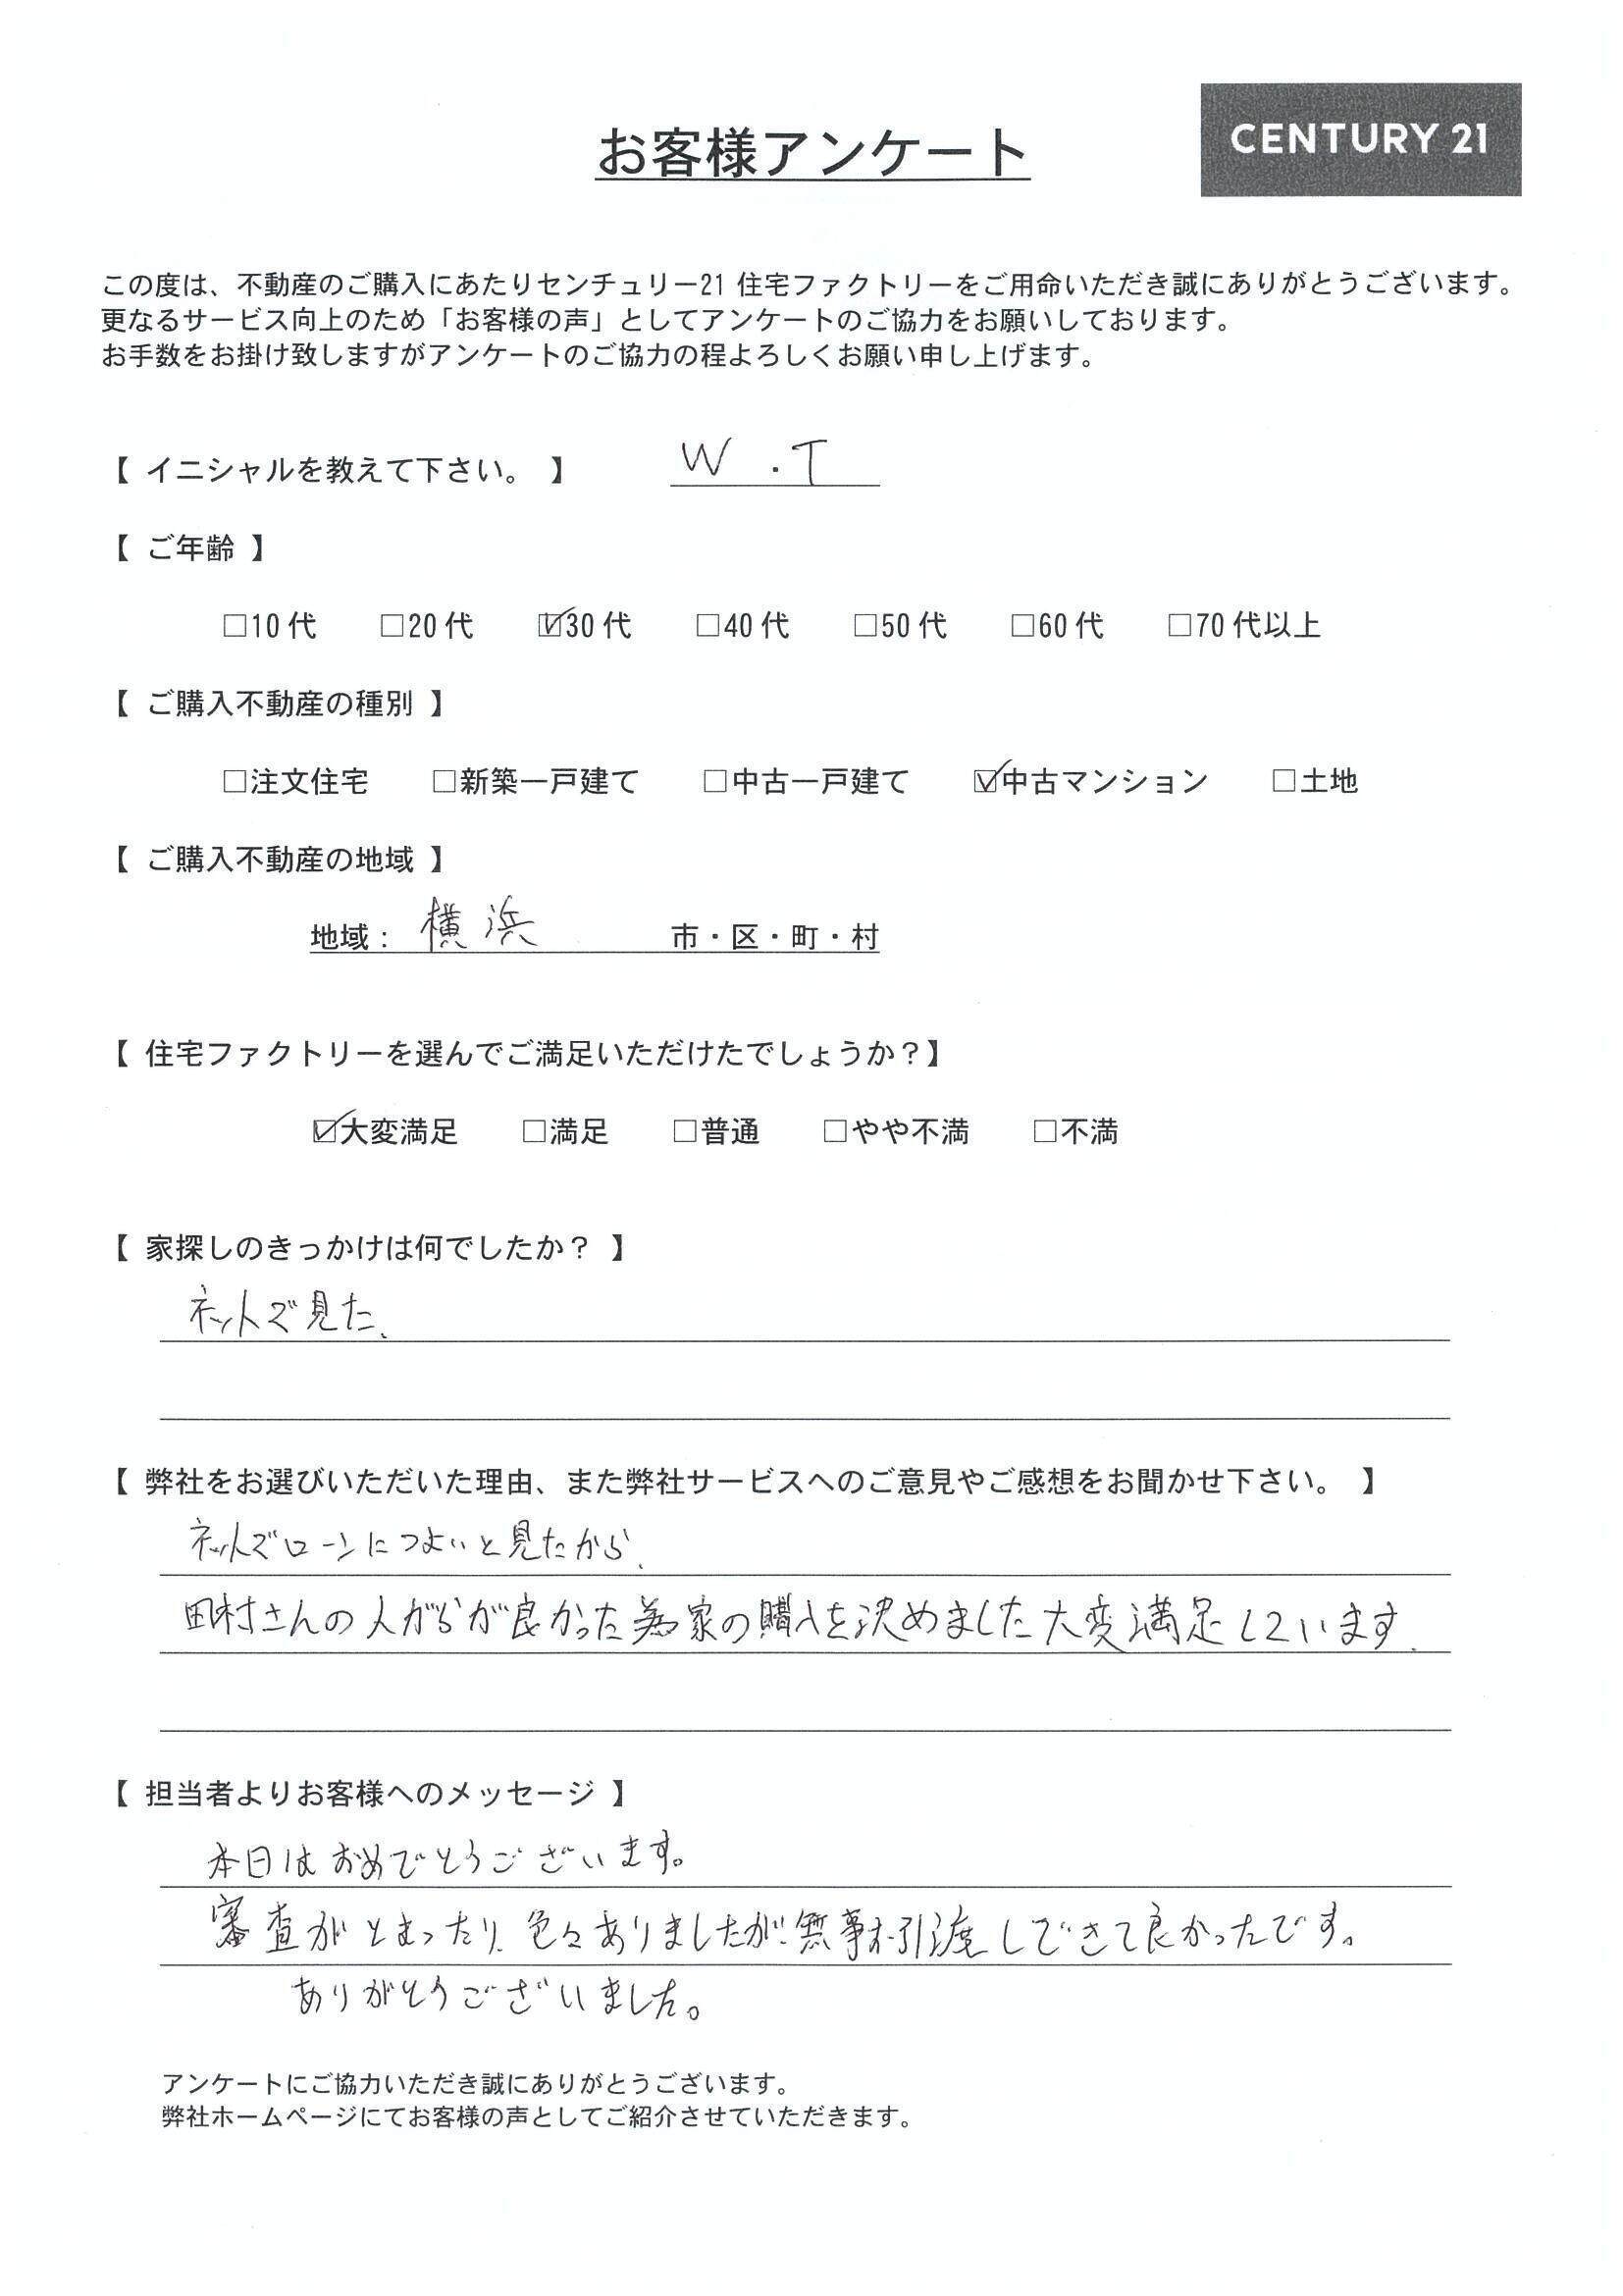 お客様アンケート
CENTURY 21
この度は、不動産のご購入にあたりセンチュリー21 住宅ファクトリーをご用命いただき誠にありがとうございます。
更なるサービス向上のため「お客様の声」としてアンケートのご協力をお願いしております。
お手数をお掛け致しますがアンケートのご協力の程よろしくお願い申し上げます。
【 イニシャルを教えて下さい。 】 W ・T
【 ご年齢 】
□10代 □20代 ☑30代 □40代 □50代 □60代 □70代以上
【 ご購入不動産の種別 】
□注文住宅 □新築一戸建て □中古一戸建て ☑中古マンション □土地
【 ご購入不動産の地域 】
地域： 横浜 市・区・町・村
【 住宅ファクトリーを選んでご満足いただけたでしょうか？】
☑大変満足 □満足 □普通 □やや不満 □不満
【 家探しのきっかけは何でしたか？ 】
ネットで見た、
【 弊社をお選びいただいた理由、また弊社サービスへのご意見やご感想をお聞かせ下さい。 】
ネットでローンにつよいと見たから、
田村さんの人がらが良かった為家の購入を決めました大変満足しています、
【 担当者よりお客様へのメッセージ 】
本日はおめでとうございます。
審査がとまったり、色々ありましたが無事お引渡しできて良かったです。
ありがとうございました。
アンケートにご協力いただき誠にありがとうございます。
弊社ホームページにてお客様の声としてご紹介させていただきます。